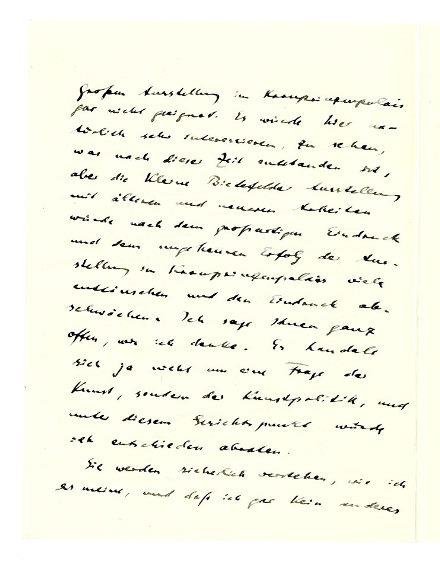 großen Ausstellung im Kronprinzenpalais
gar nicht geeignet. Es würde hier na-
türlich sehr interessieren, zu sehen,
was nach dieser Zeit entstanden ist,
aber die kleine Bielefelder Ausstellung
mit älteren und neueren Arbeiten
würde nach dem großartigen Eindruck
und dem ungeheuren Erfolg der Aus-
stellung im Kronprinzenpalais viele
enttäuschen und den Eindruck ab-
schwächen. Ich sage Ihnen ganz
offen, was ich denke. Es handelt
sich ja nicht um eine Frage der
Kunst, sondern der Kunstpolitik, und
unter diesem Gesichtspunkt würde
ich entschieden abraten.
Sie werden sicherlich verstehen, wie ich
es meine, und daß ich gar kein anderes